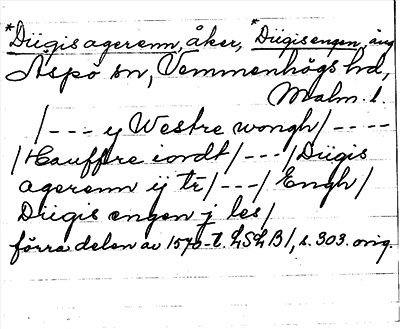 *Diigis agerenn, åker, *Diigis engen, äng
Äspö sn, Vemmenhögs hd,
Malm. l.
/--- ij Westre wongh/----
/Hauffre iordt/---/Diigis
agerenn ij tr/---/Engh/
Diigis engen j les/
förra delen av 1570-t. LSLB1, s. 303. orig.